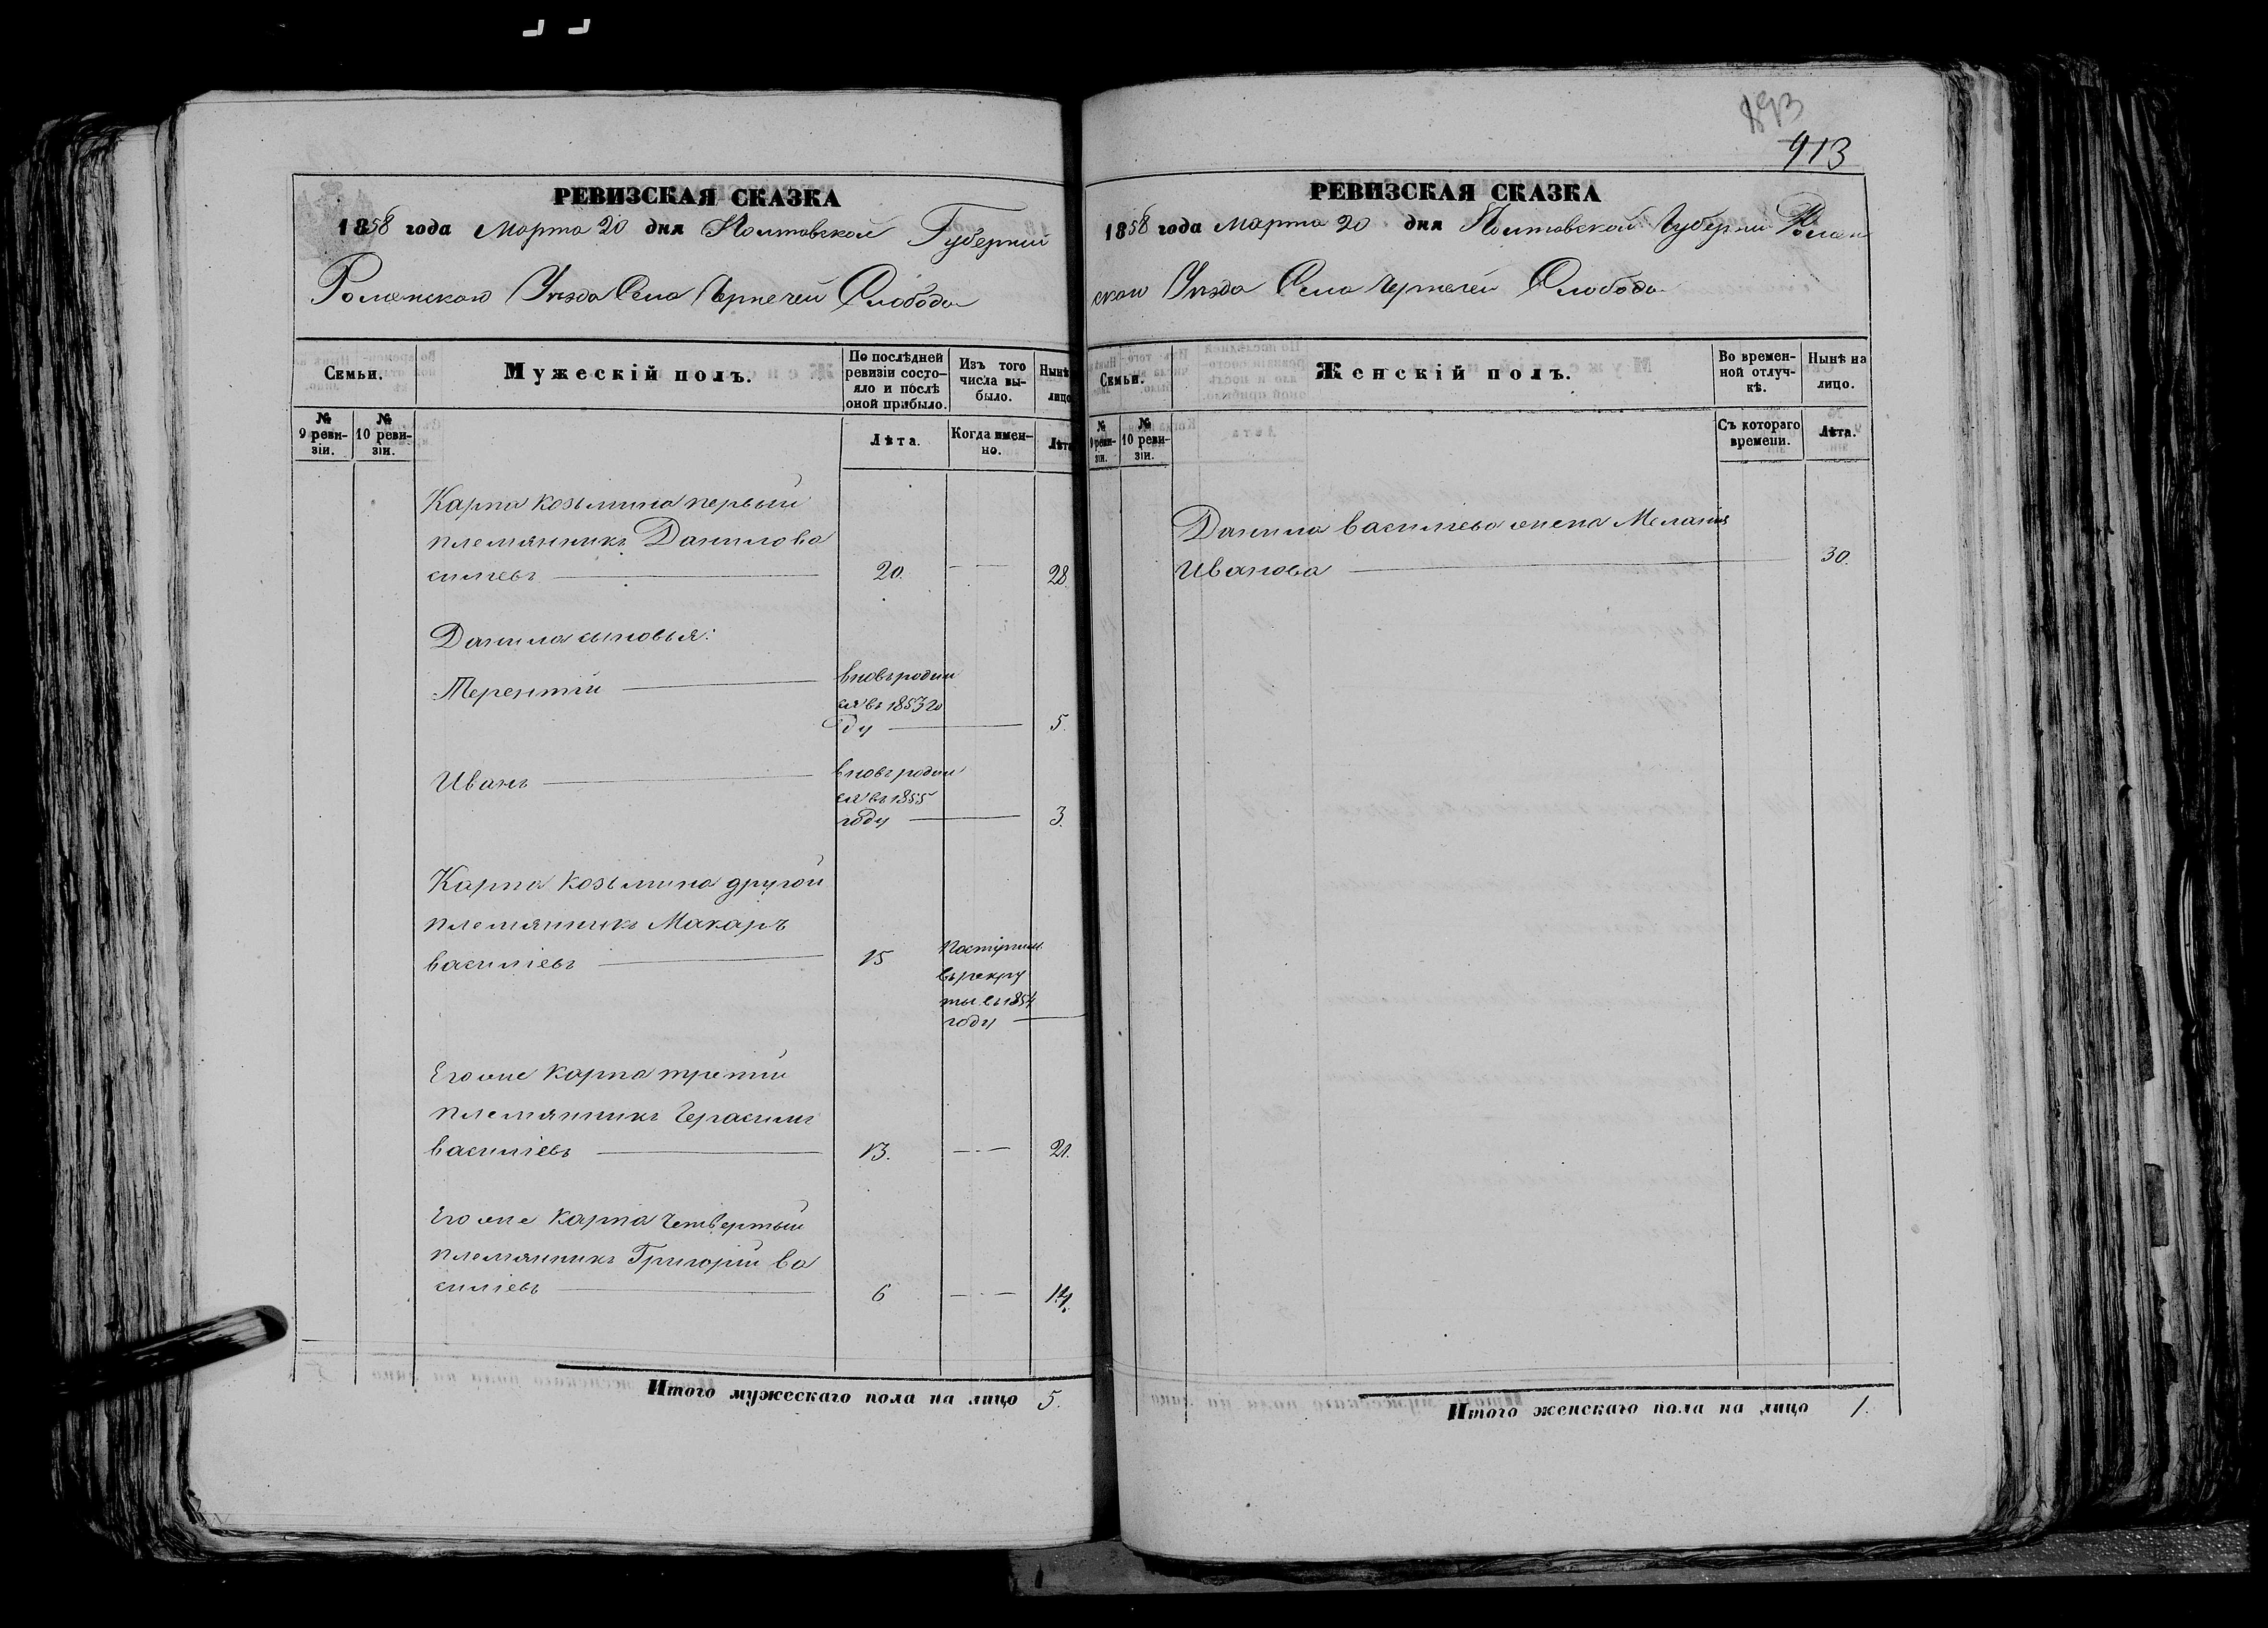 893
913
РЕВИЗСКАЯ СКАЗКА
1858 года Марта 20 дня Полтавской Губерніи
Роменскаго Уѣзда Села Чернечей Слободы
Семьи.
Мужескій полъ.
По послѣдней ревизіи состояло и послѣ оной прибыло.
Изъ того числа выбыло.
Нынѣ лицо
№ 9 ревизіи.
№ 10 ревизіи.
Лѣта.
Когда именно.
Лѣта
Карпа Козьмина первый
племянникъ Данило Ва
сильевъ 20. 28.
Данила сыновья:
Терентій
вновь родил
ся въ 1853 го
ду 5.
Иванъ
вновь родил
ся въ 1855
году 3.
Карпа Козьмина другой
племянникъ Макаръ
Васильевъ 15
Поступил
въ рекру
ты въ 1854
году
Его же Карпа третій
племянникъ Герасимъ
Васильевъ 13. 21.
Его же Карпа четвертый
племянникъ Григорій Ва
сильевъ 6 14.
Итого мужескаго пола на лицо 5.
РЕВИЗСКАЯ СКАЗКА
1858 года Марта 20 дня Полтавской Губерніи Ромен
скаго Уѣзда Села Чернечей Слободы
Семьи.
Женскій полъ.
Во временной отлучкѣ.
Нынѣ на лицо.
№ 9 ревизіи.
№ 10 ревизіи.
Съ котораго времени.
Лѣта.
Данила Васильева жена Меланія
Иванова 30.
Итого женскаго пола на лицо 1.